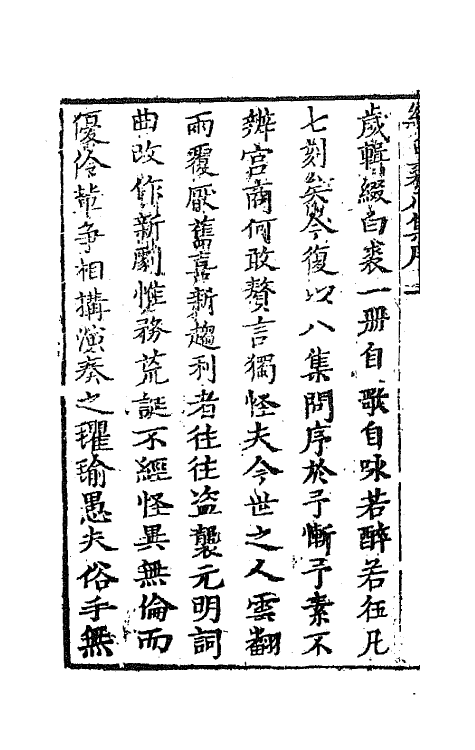 歲輯綴白裘一册自歌自咏若醉若狂凡
七刻矣今復以八集問序於予慚予素不
辨宮商何敢贅言獨怪夫今世之人雲翻
雨覆厭舊喜新趨利者往往盗襲元明詞
曲改作新劇惟務荒誕不經怪異無倫而
優伶輩爭相搆演奏之璀瑜愚夫俗手無